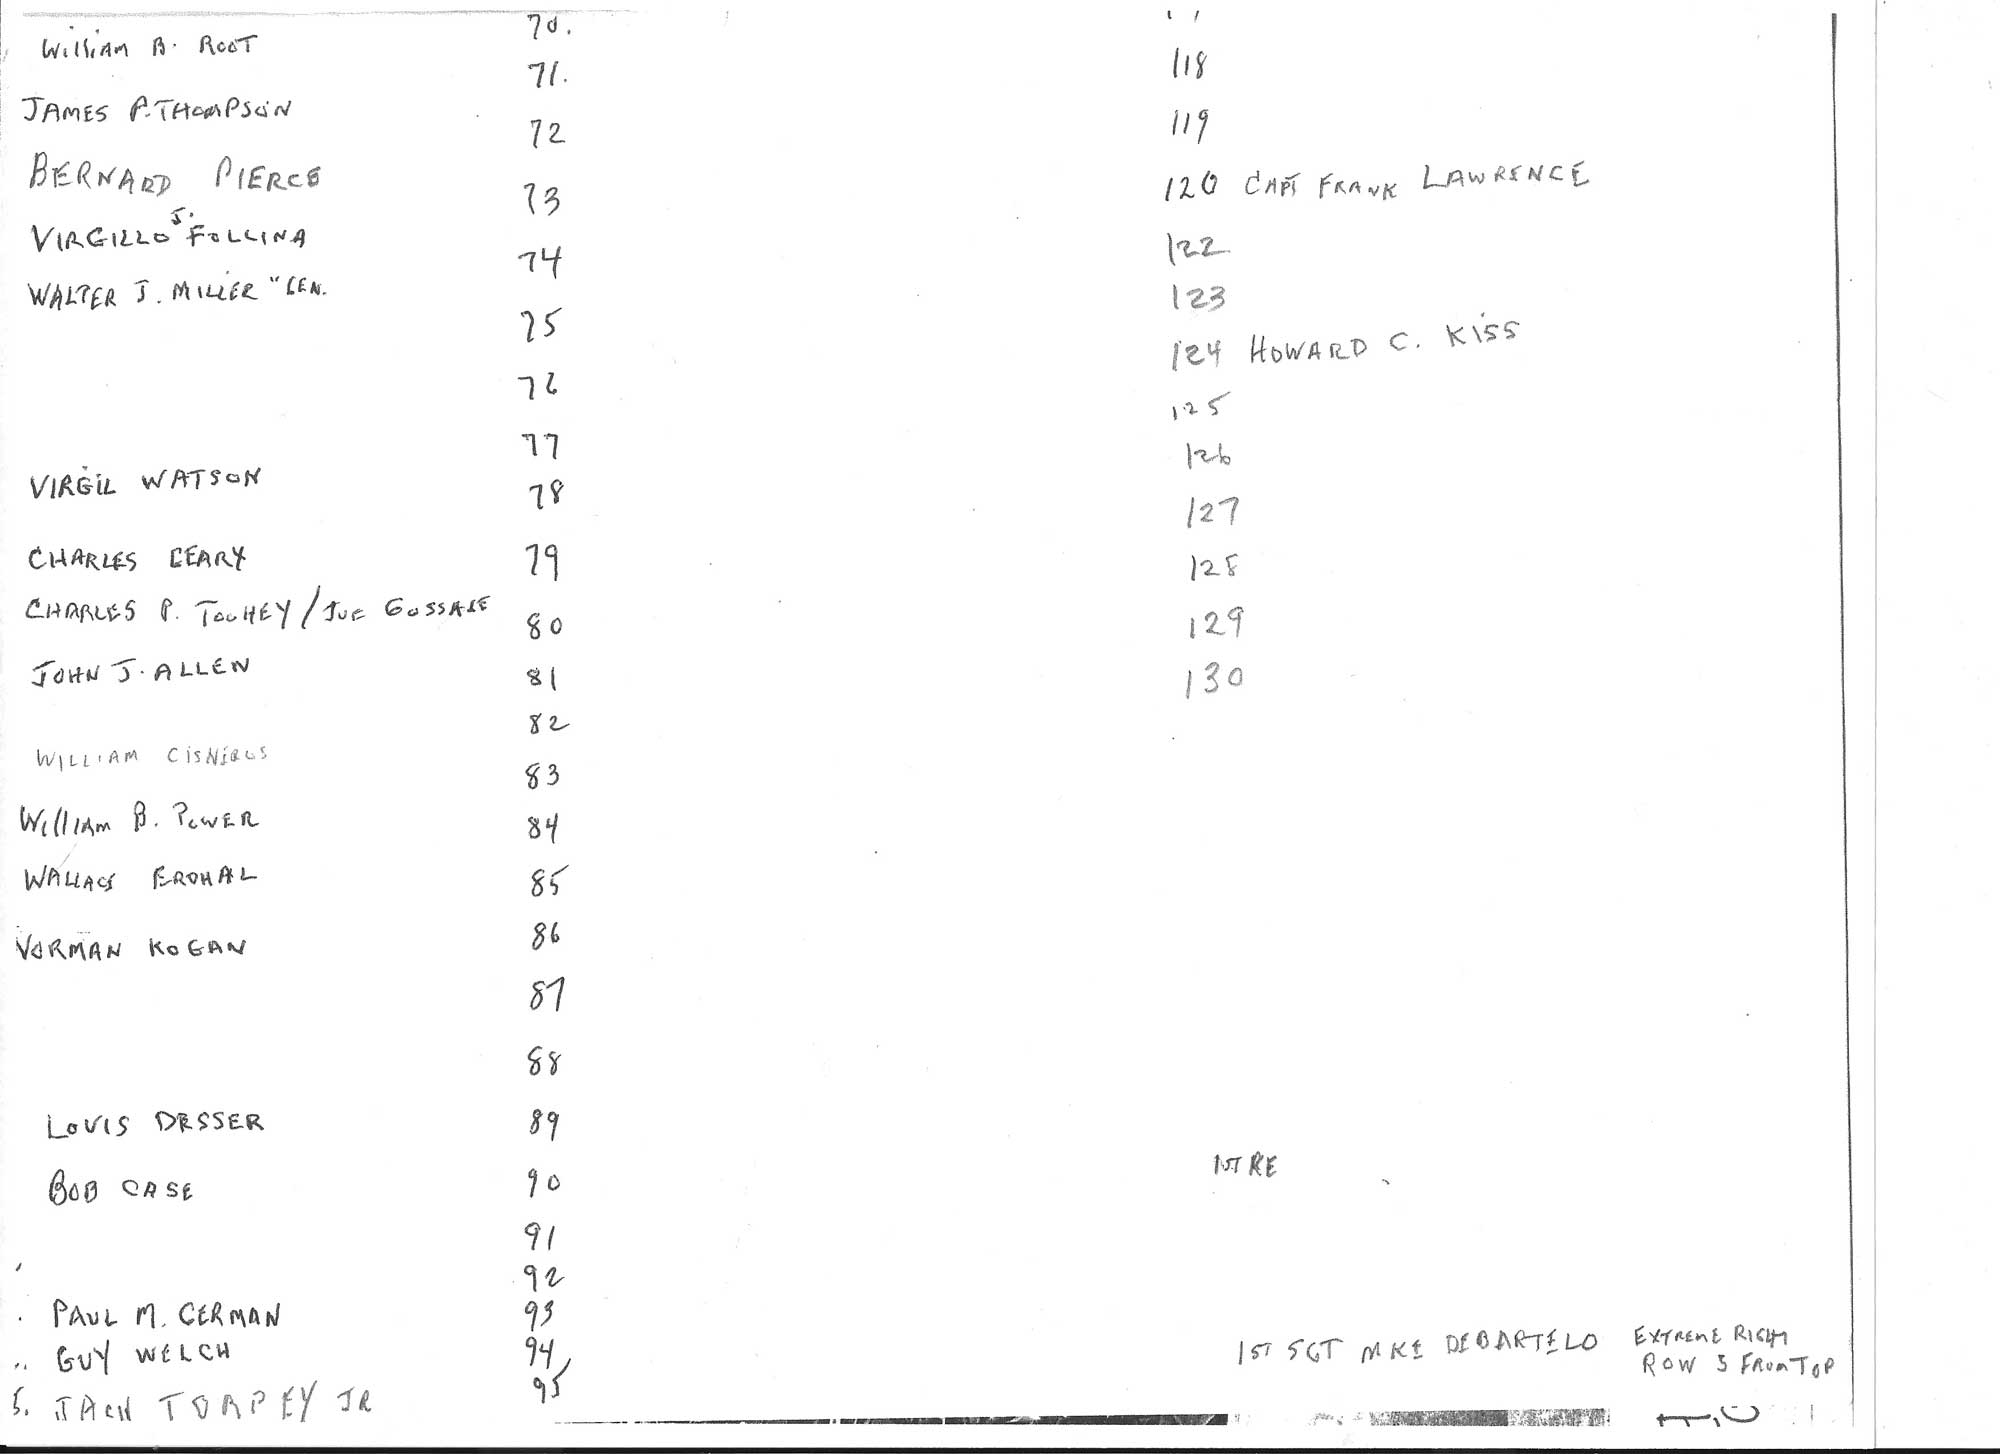 70.
William B. ROOT
71.
118
JAMES P. THOMPSON
72
119
BERNARD PIERCE
73
120 CAPT FRANK LAWRENCE
VIRGILLO J. FOLLINA
74
122
WALTER J. MILLER "LEN.
75
123
124 HOWARD C. KISS
76
125
77
126
VIRGIL WATSON
78
127
CHARLES LEARY
79
128
CHARLES P. TOOHEY / JOE
80
129
JOHN J. ALLEN
81
130
82
WILLIAM CISNEROS
83
William B. POWER
84
WALLACE
85
KOGAN
86
87
88
LOUIS DESSER
89
1ST RE
BOB CASE
90
91
92
PAUL M. GERMAN
93
GUY WELCH
94
1ST SGT MKE DEBARTELO EXTREME RIGHT
ROW 5 FROM TOP
5. JACK TORPEY JR
95